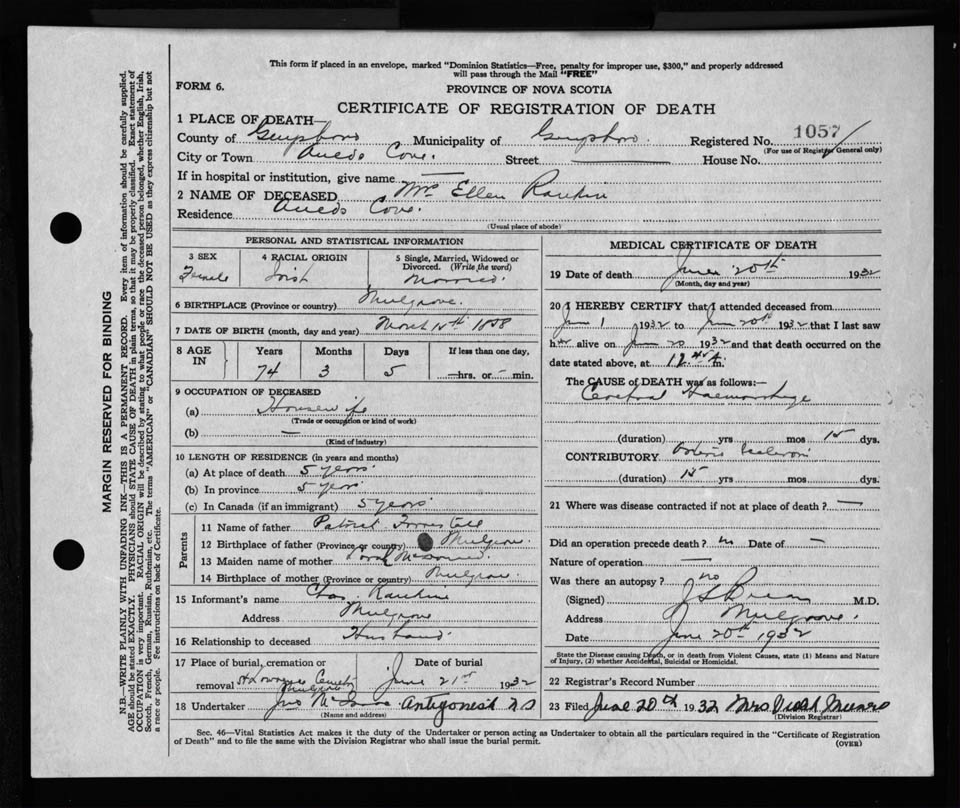 This form if placed in an envelope, marked "Dominion Statistics—Free, penalty for improper use, $300," and properly addressed
will pass through the Mail "FREE"
FORM 6.
PROVINCE OF NOVA SCOTIA
CERTIFICATE OF REGISTRATION OF DEATH
1 PLACE OF DEATH—
County of Guysboro Municipality of Guysboro. Registered No. 1057
(For use of Registrar General only)
City or Town Cove. Street House No.
If in hospital or institution, give name —
2 NAME OF DECEASED Mrs Ellen Rankin
Residence Cove.
(Usual place of abode)
PERSONAL AND STATISTICAL INFORMATION
3 SEX Female
4 RACIAL ORIGIN Irish
5 Single, Married, Widowed or Divorced. (Write the word) Married.
6 BIRTHPLACE (Province or country) Mulgrave.
7 DATE OF BIRTH (month, day and year) March 1858
8 AGE IN Years 74 Months 3 Days 5 If less than one day, — hrs. or — min.
9 OCCUPATION OF DECEASED
(a) Housewife
(Trade or occupation or kind of work)
(b) —
(Kind of industry)
10 LENGTH OF RESIDENCE (in years and months)
(a) At place of death 5 years.
(b) In province 5 years
(c) In Canada (if an immigrant) 5 years.
Parents
11 Name of father
12 Birthplace of father (Province or country) Mulgrave.
13 Maiden name of mother
14 Birthplace of mother (Province or country) Mulgrave.
15 Informant's name Chas Rankin
Address Mulgrave
16 Relationship to deceased Husband.
17 Place of burial, cremation or removal St Lawrence Cemetery Mulgrave
Date of burial June 21st 1932
18 Undertaker Antigonish N S
(Name and address)
MEDICAL CERTIFICATE OF DEATH
19 Date of death June 20th 1932
(Month, day and year)
20 I HEREBY CERTIFY that I attended deceased from
June 1 1932 to June 20th 1932 that I last saw
her alive on June 20 1932 and that death occurred on the
date stated above, at 12 m.
The CAUSE of DEATH was as follows:—
Cerebral Haemorrhage
(duration) yrs mos 15 dys.
CONTRIBUTORY Arterio Sclerosis
(duration) 15 yrs. mos. dys.
21 Where was disease contracted if not at place of death? —
Did an operation precede death? no Date of —
Nature of operation —
Was there an autopsy? no
(Signed) M.D.
Address Mulgrave.
Date June 20th 1932
State the Disease causing Death, or in death from Violent Causes, state (1) Means and Nature
of Injury, (2) whether Accidental, Suicidal or Homicidal.
22 Registrar's Record Number
23 Filed June 20th 1932 Mrs Munro
(Division Registrar)
Sec. 46—Vital Statistics Act makes it the duty of the Undertaker or person acting as Undertaker to obtain all the particulars required in the "Certificate of Registration
of Death" and to file the same with the Division Registrar who shall issue the burial permit.
(OVER)
MARGIN RESERVED FOR BINDING
N.B.—WRITE PLAINLY WITH UNFADING INK—THIS IS A PERMANENT RECORD. Every item of information should be carefully supplied.
AGE should be stated EXACTLY. PHYSICIANS should STATE CAUSE OF DEATH in plain terms, so that it may be properly classified. Exact statement of
OCCUPATION is very important. RACIAL ORIGIN will be described by stating to what people or race the deceased person belonged, whether English, Irish,
Scotch, French, German, Russian, Ruthenian, etc. The terms "AMERICAN" or "CANADIAN" SHOULD NOT BE USED as they express citizenship but not
a race or people. Fee instructions on back of Certificate.